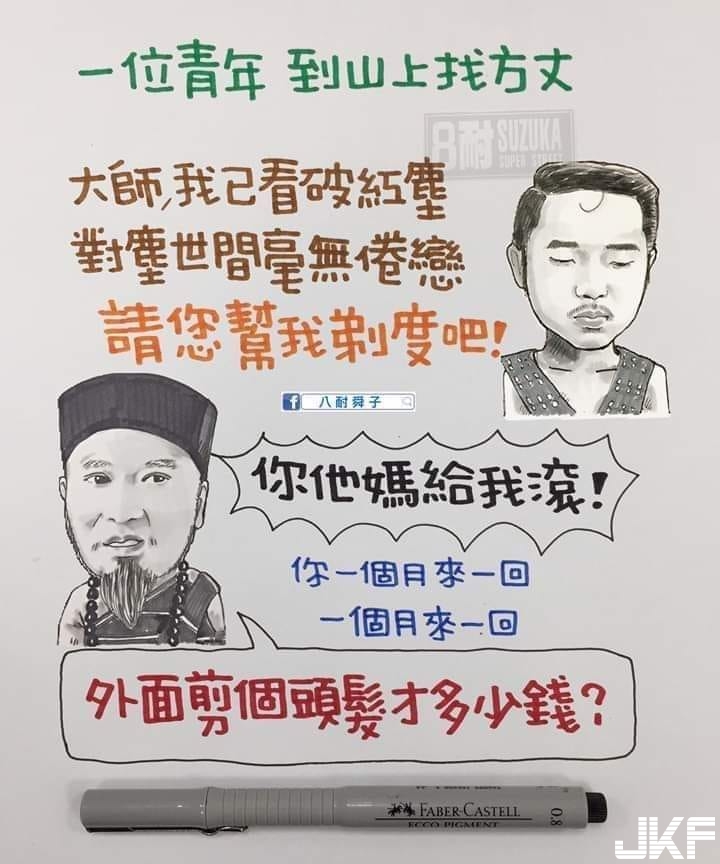 一位青年 到山上找方丈
8耐 SUZUKA
SUPER STREET
大師,我已看破紅塵
對塵世間毫無倦戀
請您幫我剃度吧!
八耐舜子
你他媽給我滾!
你一個月來一回
一個月來一回
外面剪個頭髮才多少錢?
FABER-CASTELL
ECCO PIGMENT
0.8
JKF